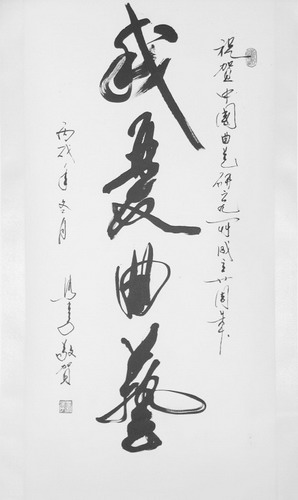 祝賀中國曲艺研究所成立廿周年
我愛曲藝
丙戌年冬月
敬賀